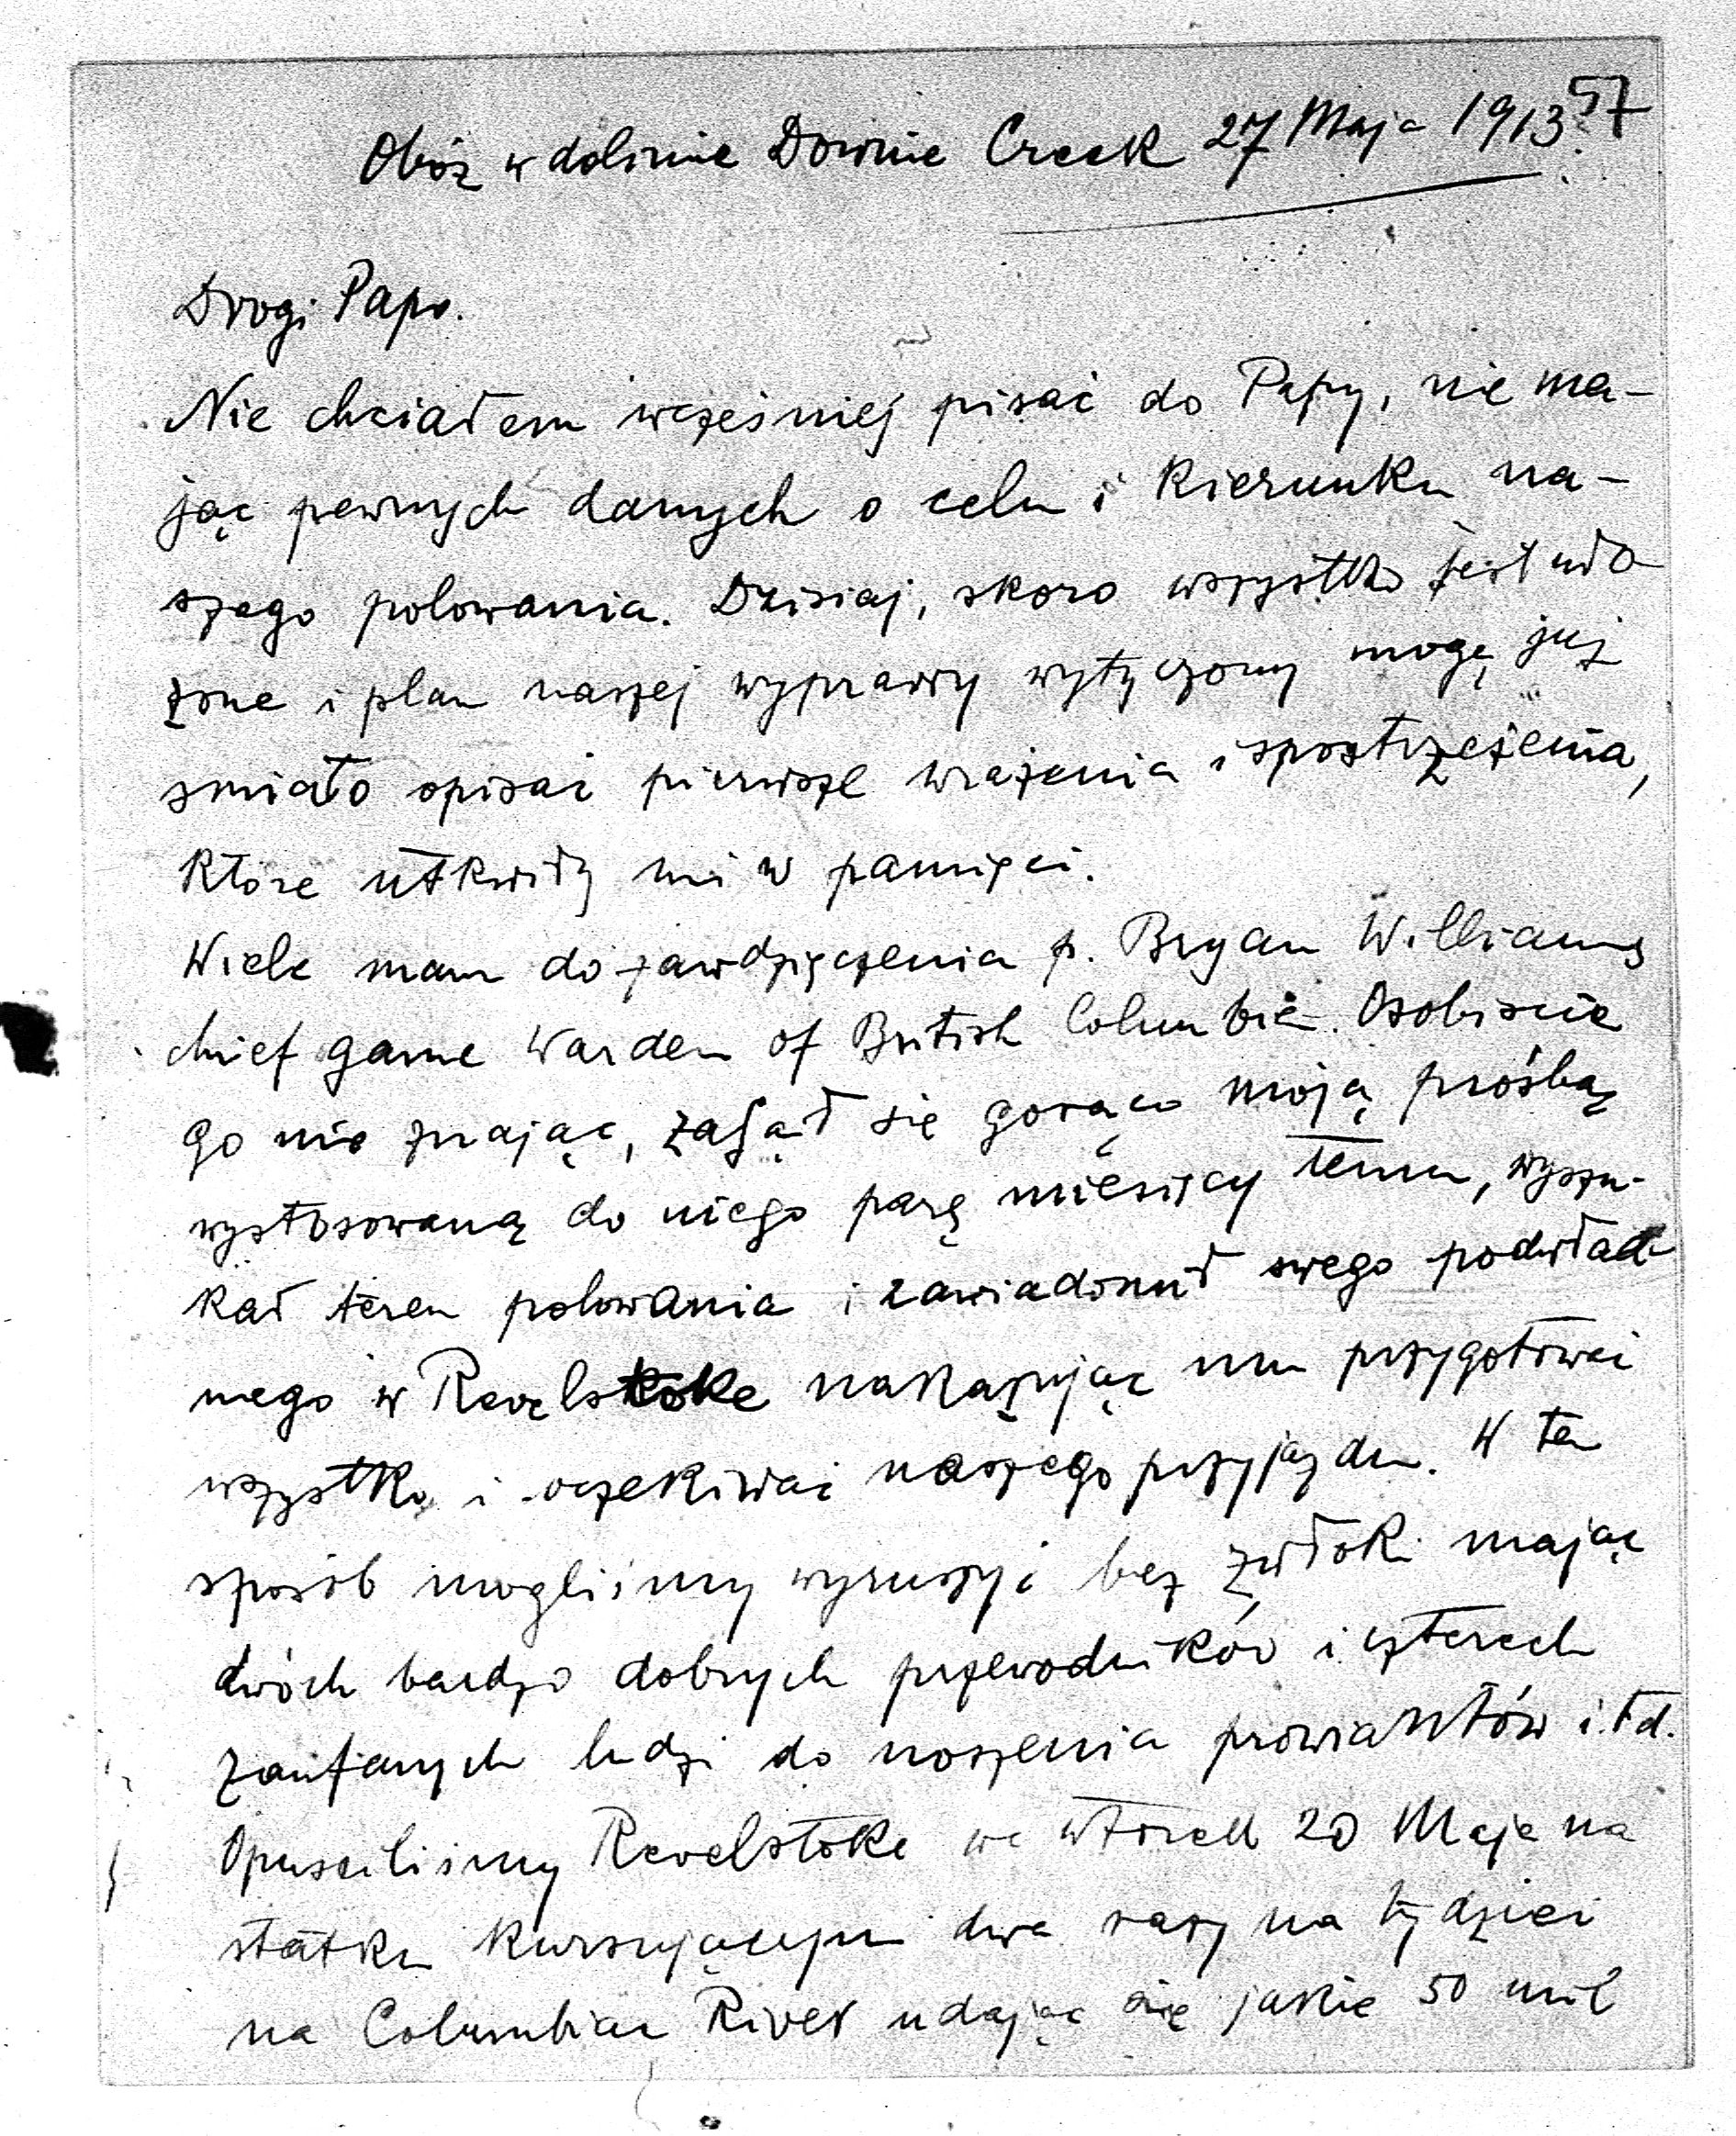 57
Obóz w dolinie Downie Creek 27 Maja 1913.
Drogi Papo.
Nie chciałem wcześniej pisać do Papy, nie ma-
jąc pewnych danych o celu i kierunku na-
szego polowania. Dzisiaj, skoro wszystko jest uło
żone i plan naszej wyprawy wytyczony mogę już
śmiało opisać pierwsze wrażenia i spostrzeżenia,
które utkwiły mi w pamięci.
Wiele mam do zawdzięczenia p. Bryan Williams
chief game Warden of British Columbia. Osobiście
go nie znając, zajął się gorąco moją prośbą
wystosowaną do niego parę miesięcy temu, wyszu-
kał teren polowania i zawiadomił swego podwład-
nego w Revelstoke nakazując mu przygotować
wszystko i oczekiwać naszego przyjazdu. W ten
sposób mogliśmy wyruszyć bez zwłoki mając
dwóch bardzo dobrych przewodników i czterech
zaufanych ludzi do noszenia prowiantów i.t.d.
Opuściliśmy Revelstoke we wtorek 20 Maja na
statku kursującym dwa razy na tydzień
na Columbia River udając się jakie 50 mil